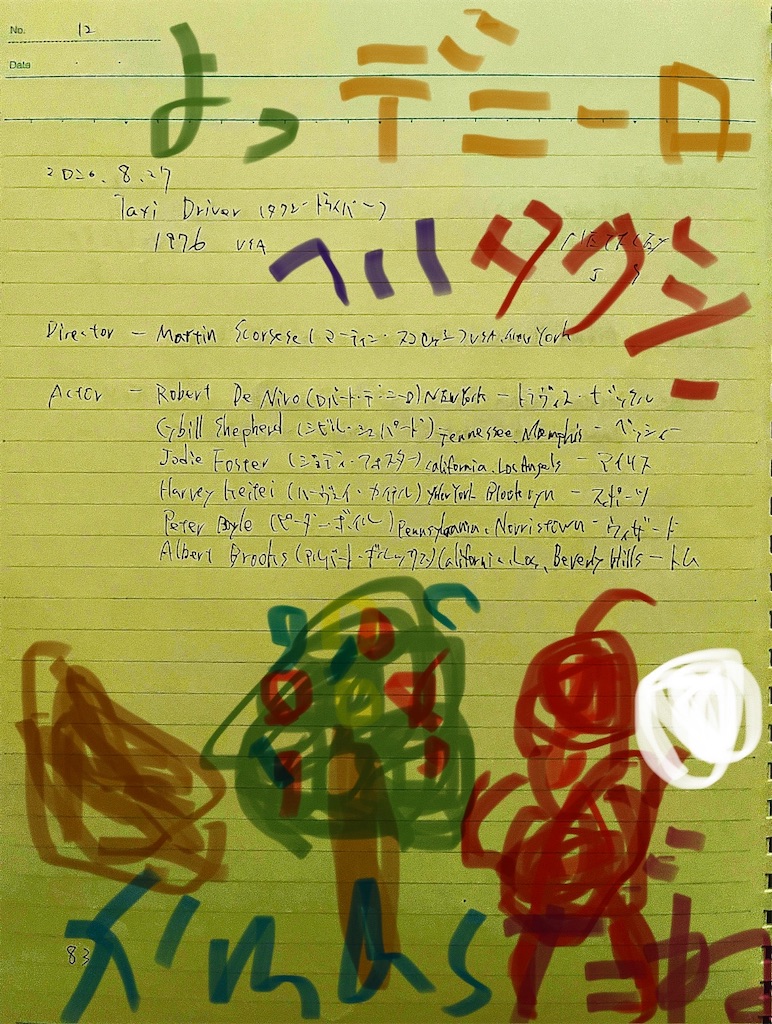 No. 12
Data
よっデミーロ
2020.8.27
Taxi Driver (タクシードライバー)
1976 USA
ヘルタクシー
Director - Martin Scorsese (マーティン・スコセッシ) USA. New York
Actor - Robert De Niro (ロバート・デニーロ) New York - トラヴィス・ビックル
Cybill Shepherd (シビル・シェパード) Tennessee. Memphis - ベッツィー
Jodie Foster (ジョディ・フォスター) California. Los Angels - アイリス
Harvey Keitel (ハーヴェイ・カイテル) New York Blooklyn - スポーツ
Peter Boyle (ピーター・ボイル) Pennsylvania. Norristown - ウィザード
Albert Brooks (アルバート・ブルックス) California. Los, Beverly Hills - トム
83
だね